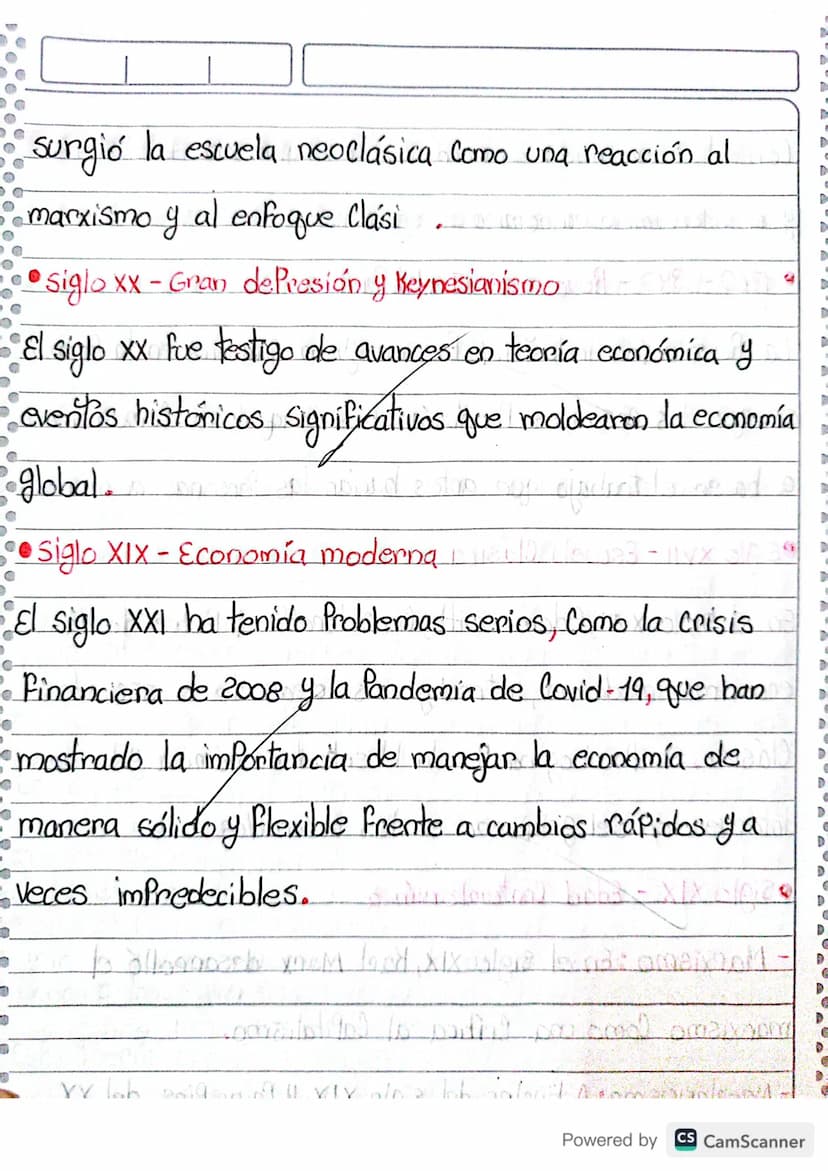 surgió la escuela neoclásica como una reacción al
marxismo y al enfoque Clási .
• Siglo XX - Gran depresión y Keynesianismo
El siglo XX fue testigo de avances en teoría económica y
eventos históricos significativos que moldearon la economía
global.
• Siglo XIX - Economía moderna
El siglo XXI ha tenido Problemas serios, Como la crisis
financiera de 2008 y la Pandemia de Covid-19, que han
mostrado la importancia de manejar la economía de
manera sólido y flexible frente a cambios rápidos y a
veces impredecibles.
Powered by CS CamScanner